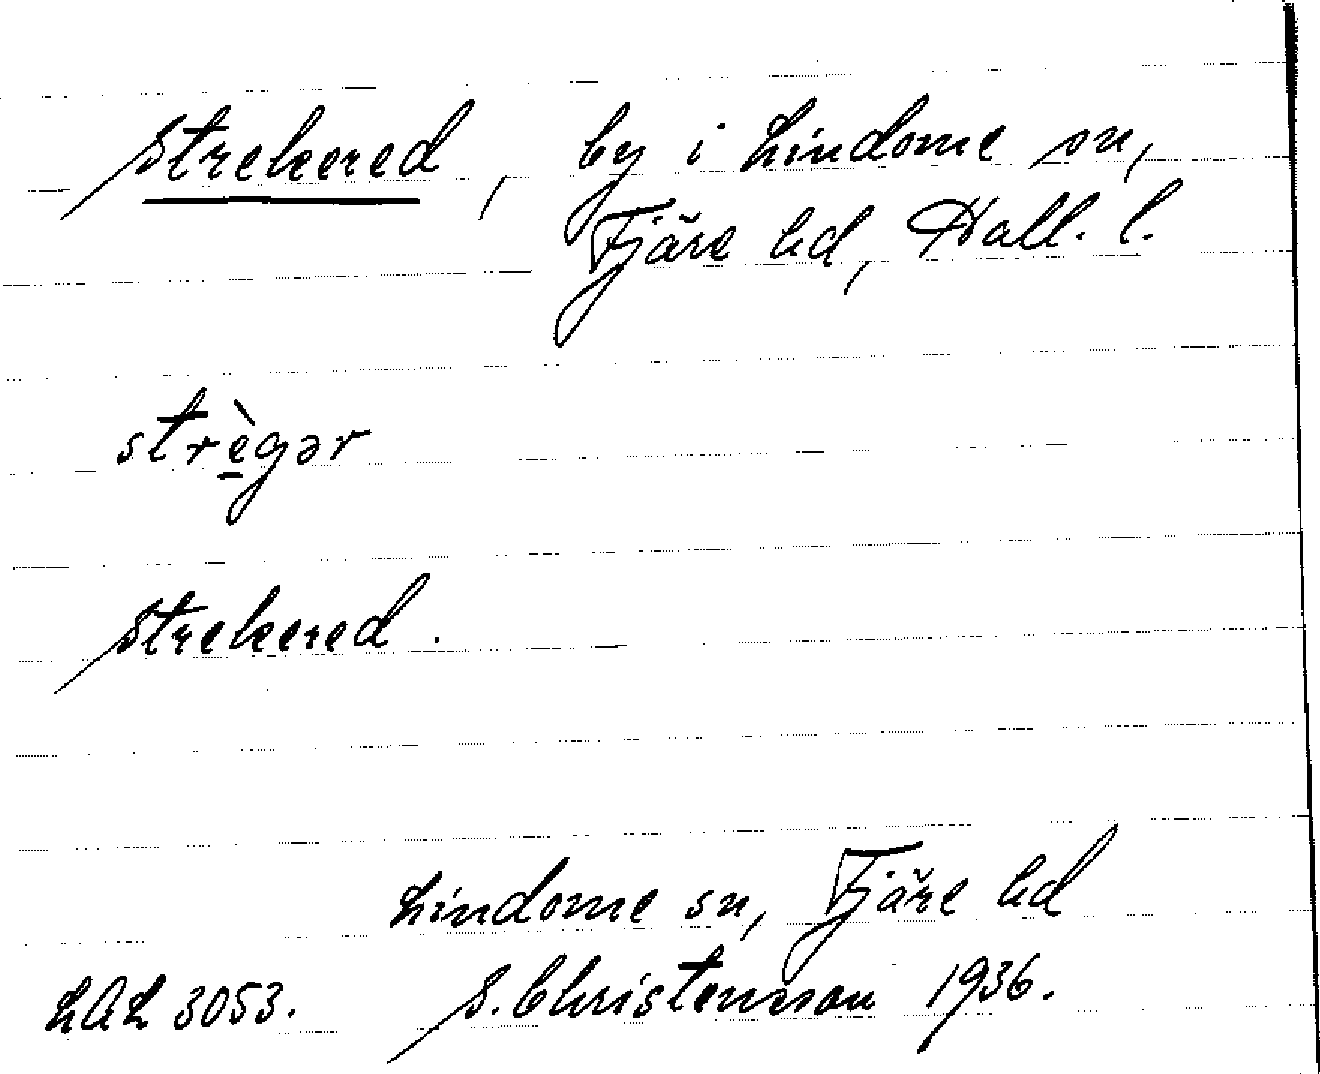 Strekered, by i Lindome sn,
Fjäre hd, Hall. l.
strè̱gər
Strekered.
Lindome sn, Fjäre hd
LAL 3053. S. Christensson 1936.